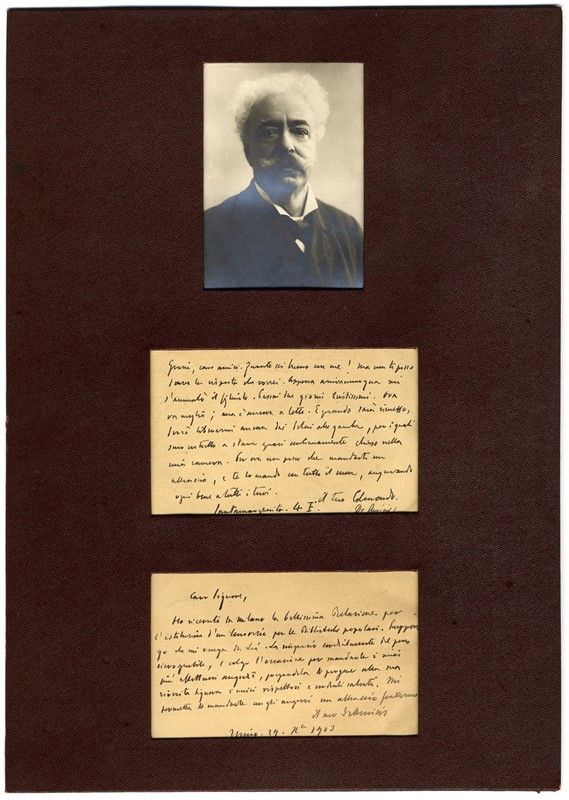 Grazie, caro amico. Quanto sei buono con me! Ma non ti posso
dare la risposta che vorrei. Appena
s'ammalò il figliolo. Passai tre giorni tristissimi. Ora
va meglio; ma è ancora a letto. E quando sarà rimesso,
dovrò liberarmi ancora dei dolori alle gambe, per i quali
son costretto a stare quasi continuamente chiuso nella
mia camera. Per ora non posso che mandarti un
abbraccio, e te lo mando con tutto il cuore, augurando
ogni bene a tutti i tuoi.
Il tuo Edmondo
Santamargherita. 4. I. De Amicis
Caro Signore,
Ho ricevuto da Milano la bellissima Relazione per
l'istituzione d'un Consorzio per le Biblioteche popolari.
mi venga da Lei: La ringrazio cordialmente del pensiero
gentile, e colgo l'occasione per mandarle i miei
più affettuosi auguri, pregandola di porgere alla sua
Signora i miei rispettosi e cordiali saluti. Mi
permetta di mandarle con gli auguri un abbraccio fraterno
Il suo De Amicis
Torino. 29. 1903